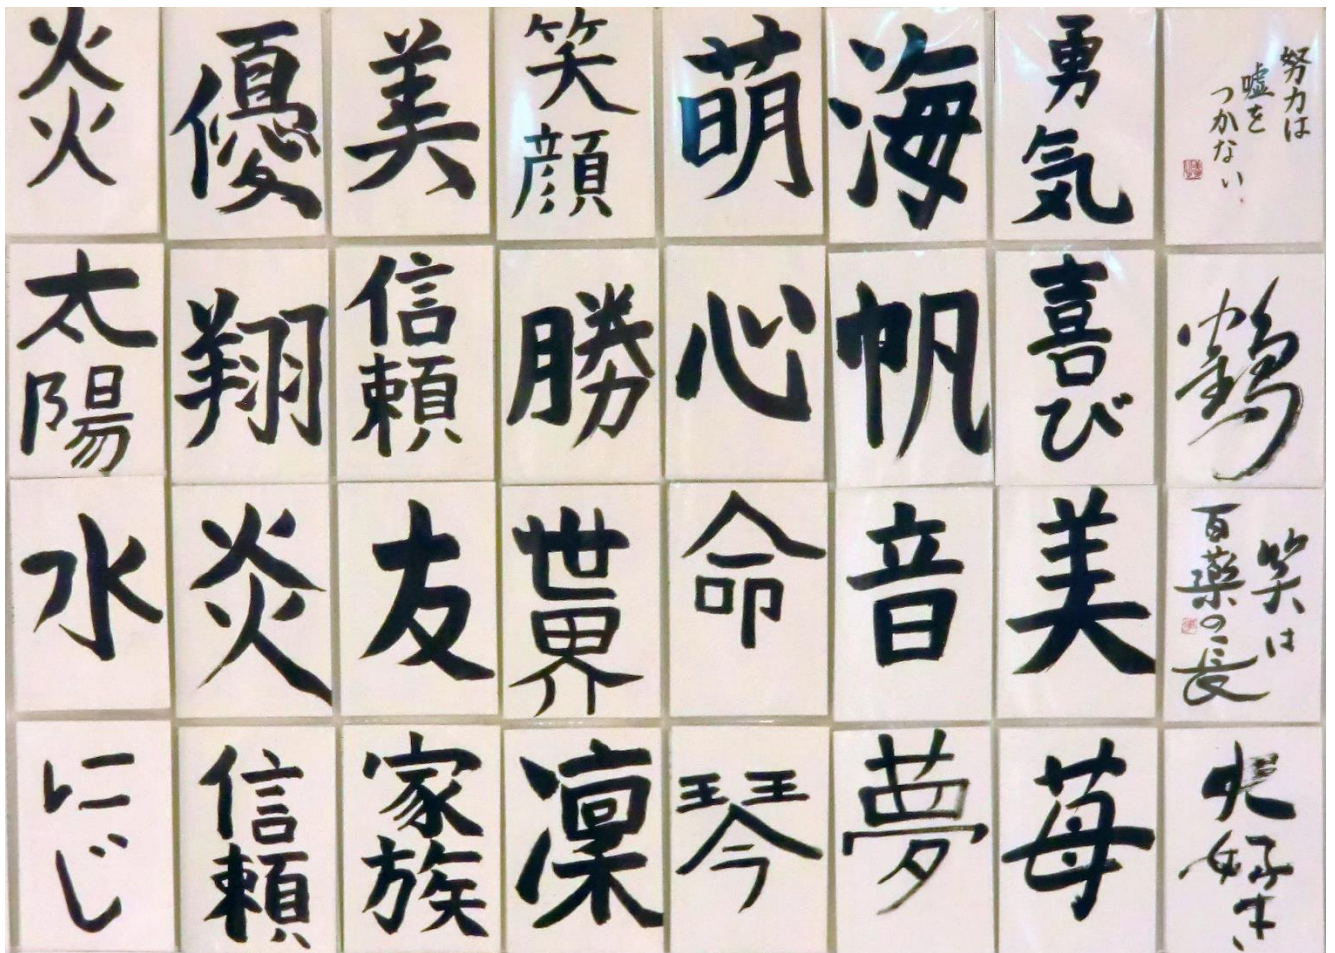 炎
優
美
笑顔
萌
海
勇気
努力は
嘘を
つかない
太陽
翔
信頼
勝
心
帆
喜び
鶴
水
炎
友
世界
命
音
美
笑は
百薬の長
にじ
信頼
家族
凛
琴
夢
苺
大好き